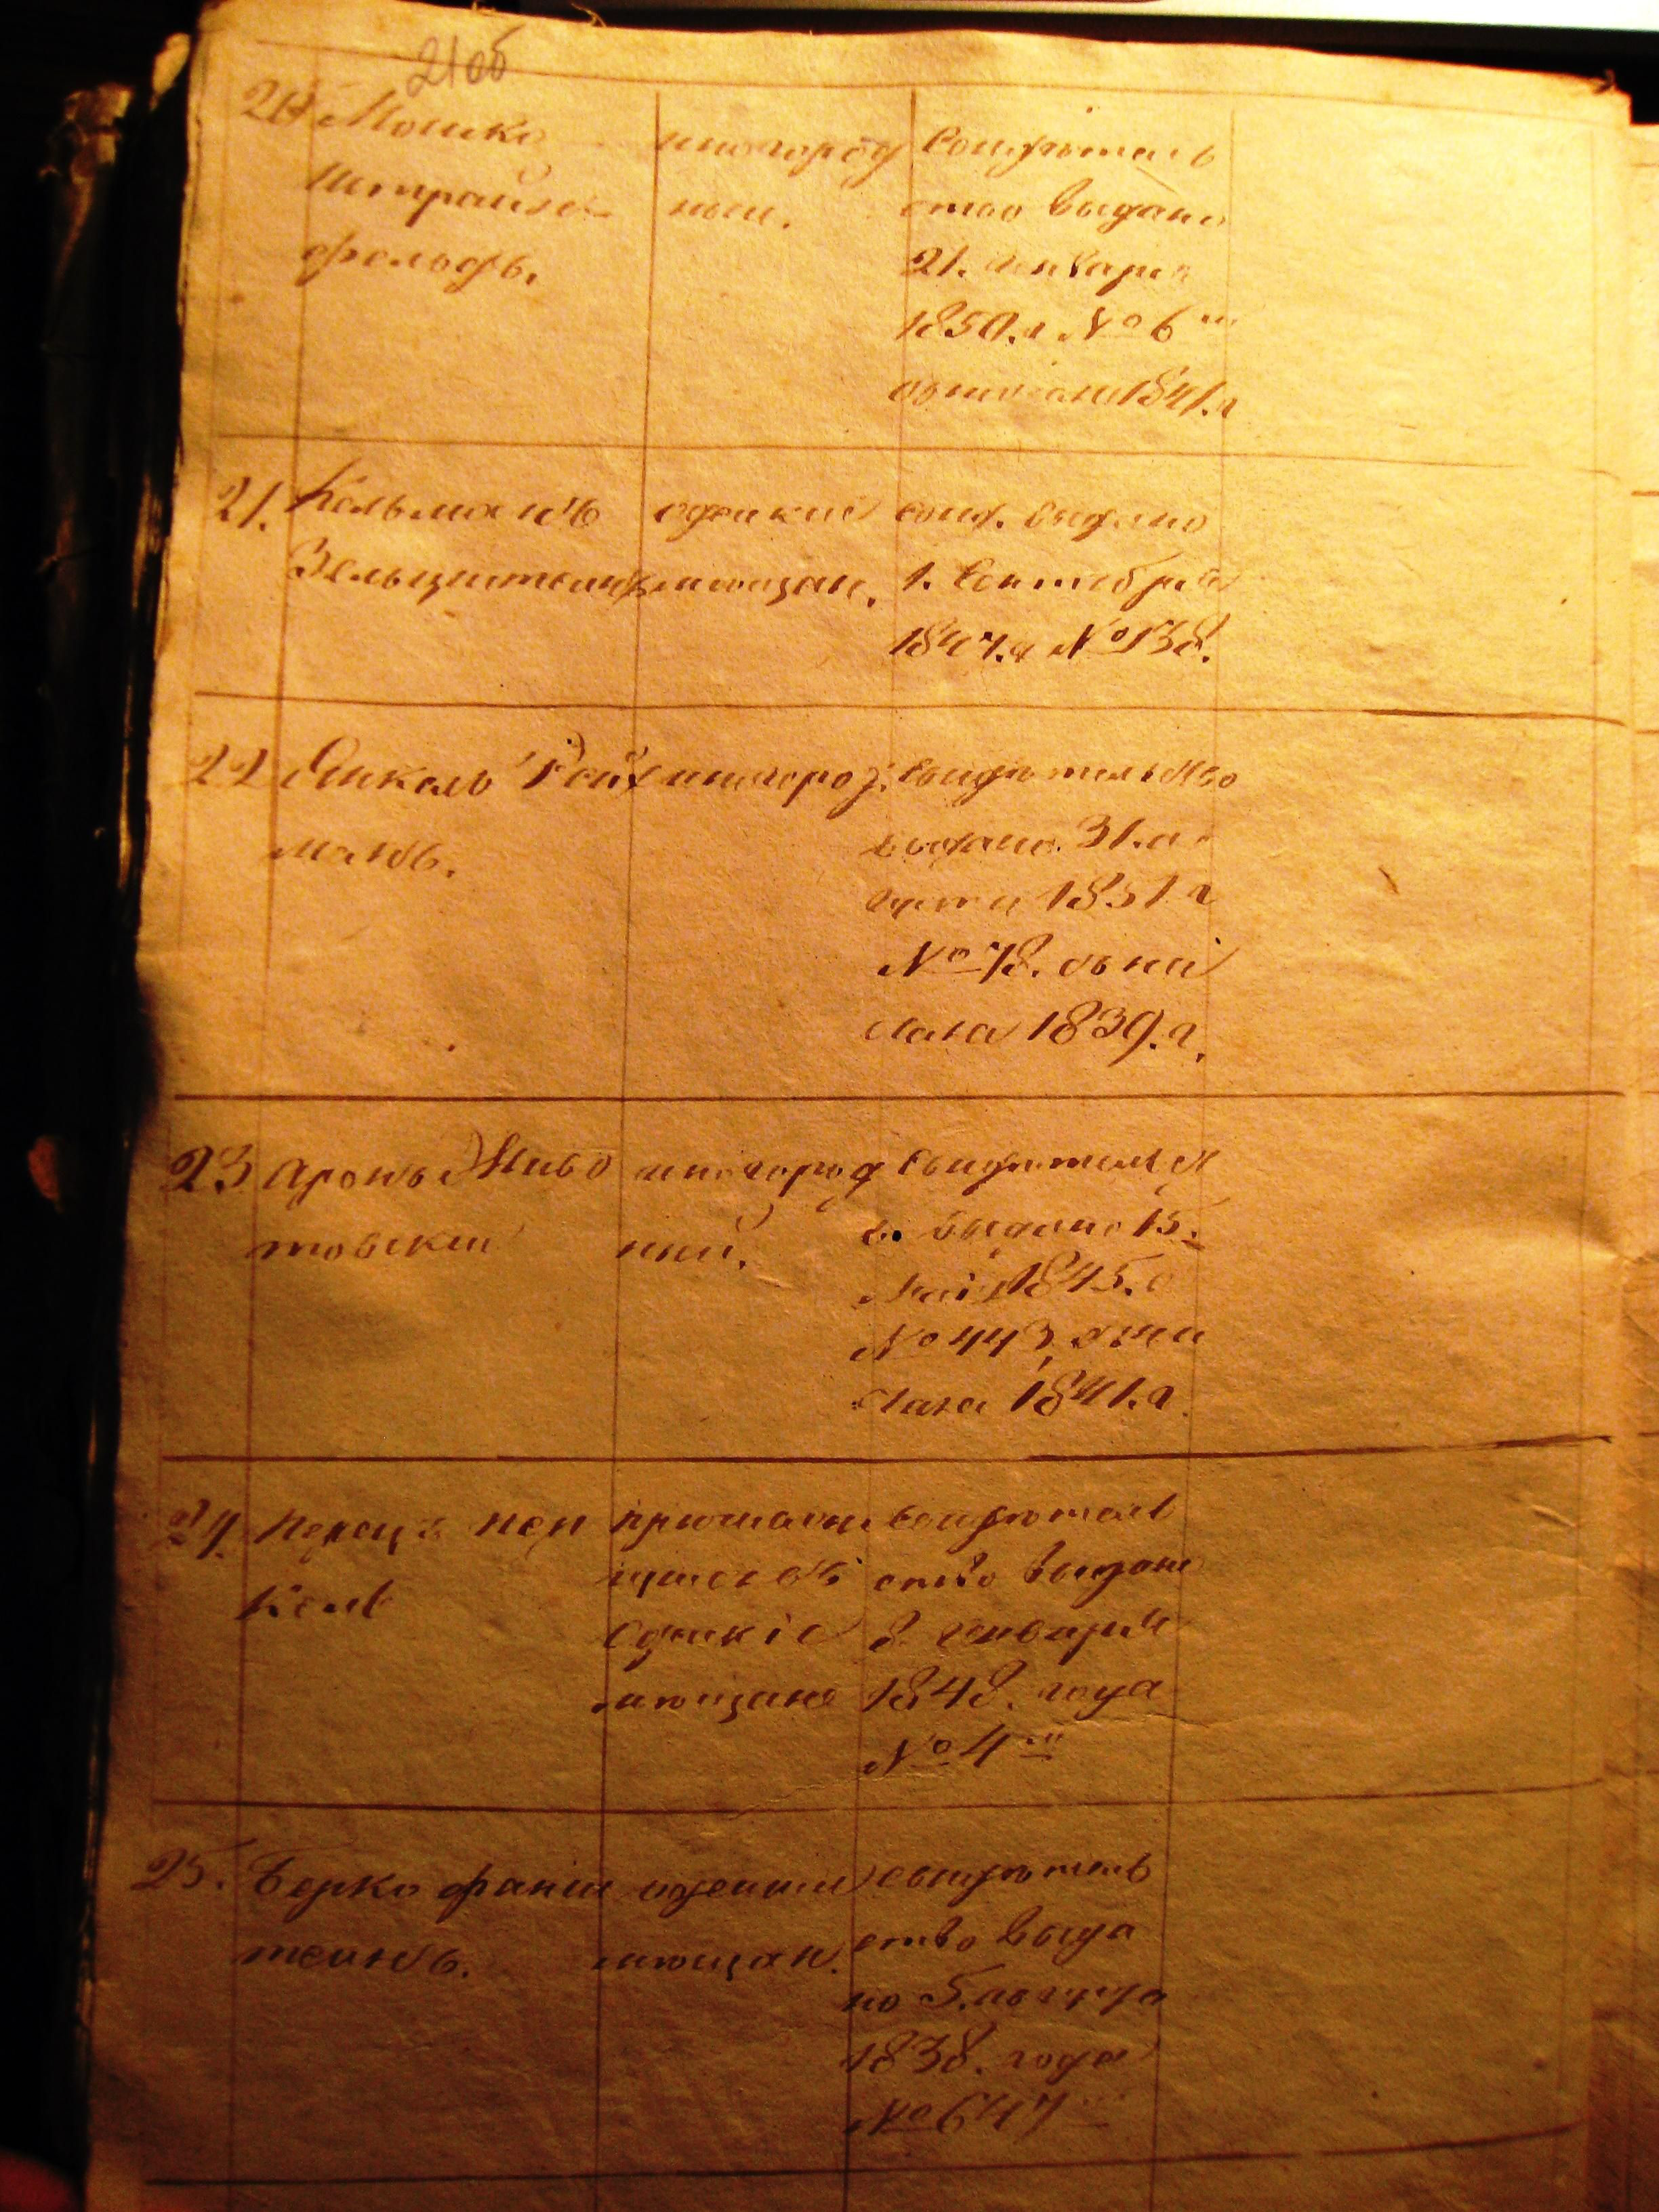 21об
20 Мошко
Штрайх-
фельдъ.
иногород
ный.
Свидѣтель
ство выдано
21. Генваря
1850. г №6
1841. г
21. Кельманъ
Зельцштейнъ
одескій
мѣщан.
свид. выдано
1. Сентября
1847. г №138.
22 Янкель Рейх
манъ.
иногород:
Свидѣтельство
выдано 31. а
густа 1851 г
№78. онъ на
1839. г.
23 Аронъ Живо
товский
иногород
ний.
Свидѣтельст
во выдано 15.
Маія 1845. г
№443
1841. г
24. Перецъ Пен
кель
Одескіе
мѣщане
свидѣтель
ство выдано
8. генваря
1848. года
№4
25. Берко Файн
штейнъ.
одескій
мѣщан.
свидѣтель
ство выда
но 5.
1838. года
№647